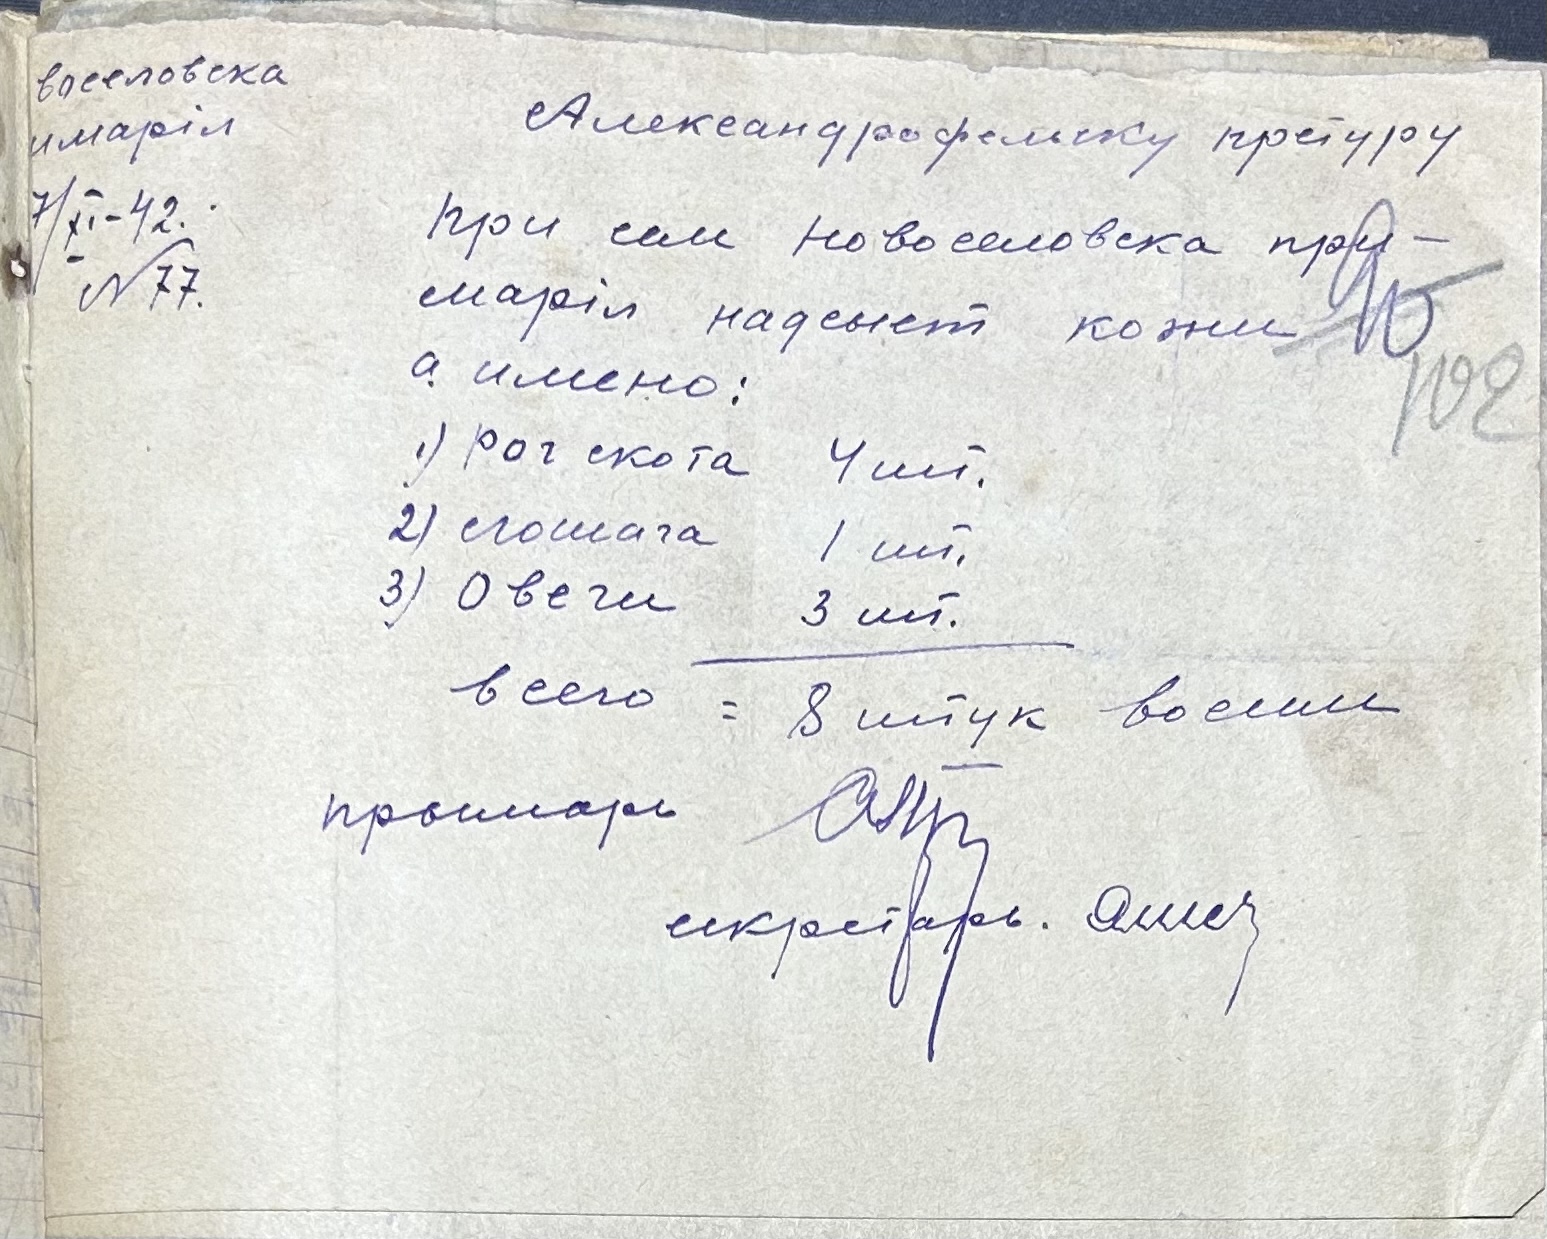 воселовска
имаріл
7/XI-42.
№ 77.
Александрофельску претуру
При сем Новоселовска при-
маріл надсыет кожи
а имено:
102
1) Рог скота 4 шт.
2) стошага 1 шт.
3) Овечи 3 шт.
всего = 8 штук восим
прымарь
секретарь.